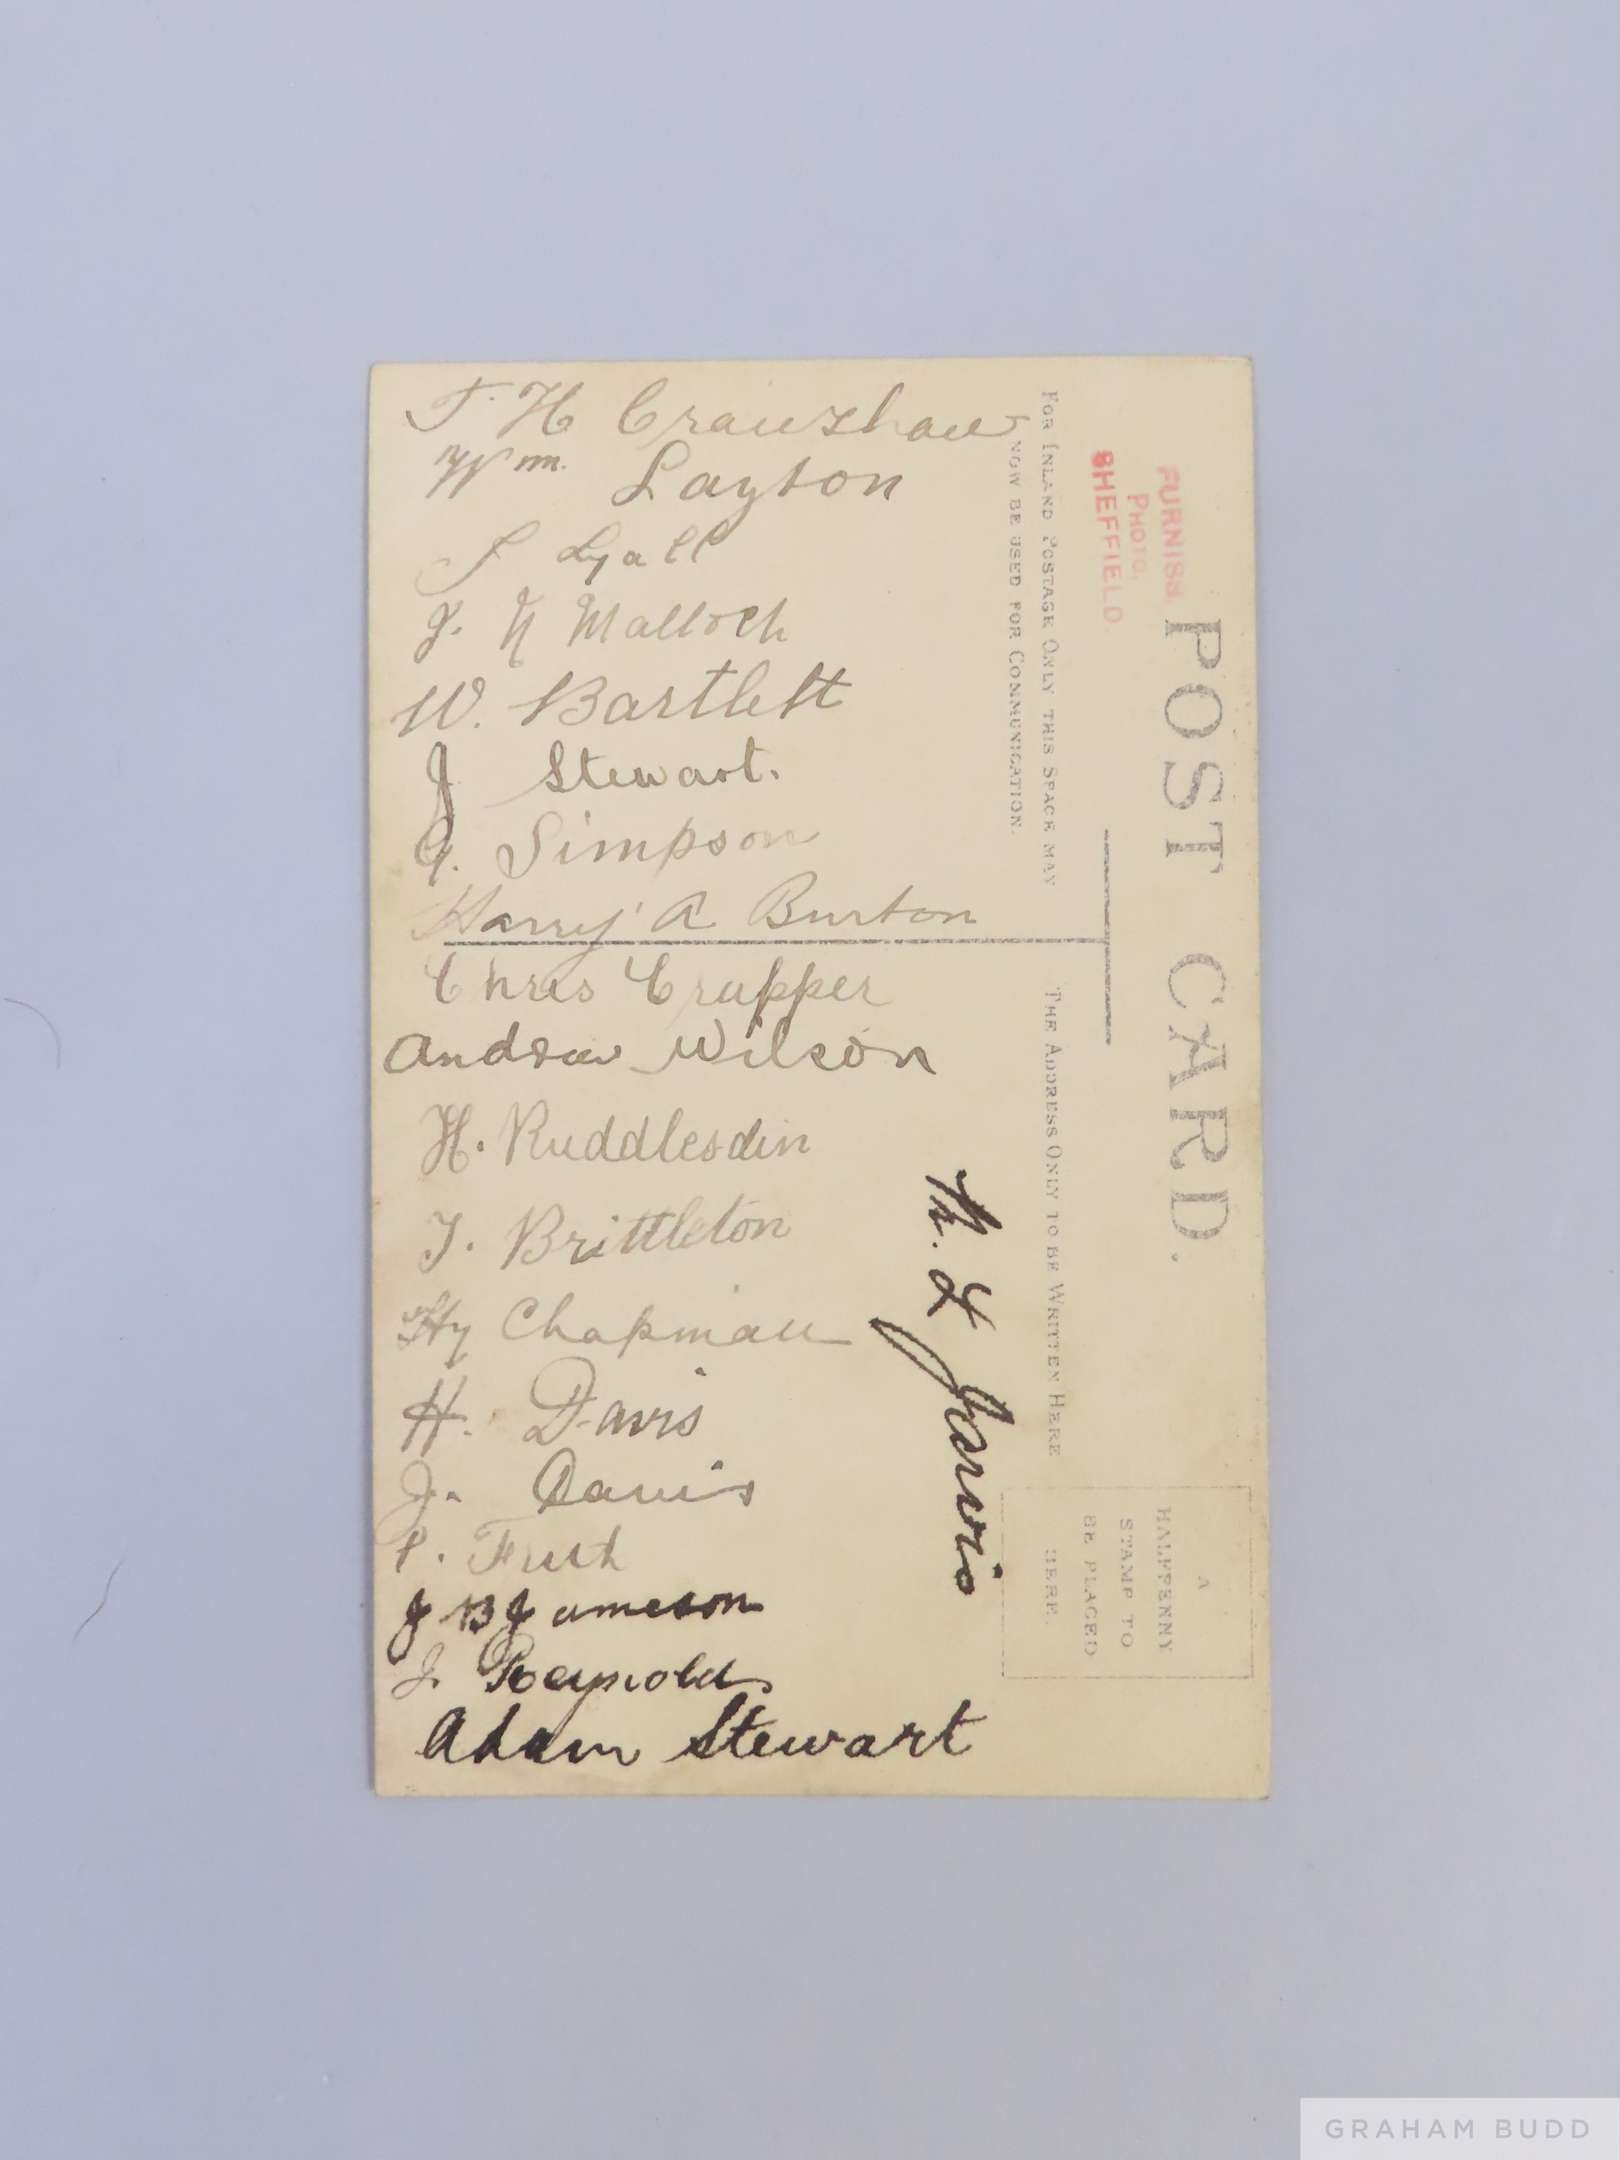 T. H Crawshaw
Wm. Layton
J Lyall
J. H Malloch
W. Bartlett
J Stewart.
G. Simpson
Harry A Burton
Chris Crapper
Andrew Wilson
H. Ruddlesdin
T. Brittleton
Hy Chapman
H. Davis
J. Davis
P. Frith
J B Jameson
J. Reynolds
Adam Stewart
Jarvis
POST CARD.
FURNISS,
PHOTO,
SHEFFIELD.
FOR INLAND POSTAGE ONLY THIS SPACE MAY
NOW BE USED FOR COMMUNICATION.
THE ADDRESS ONLY TO BE WRITTEN HERE
A
HALFPENNY
STAMP TO
BE PLACED
HERE.
GRAHAM BUDD